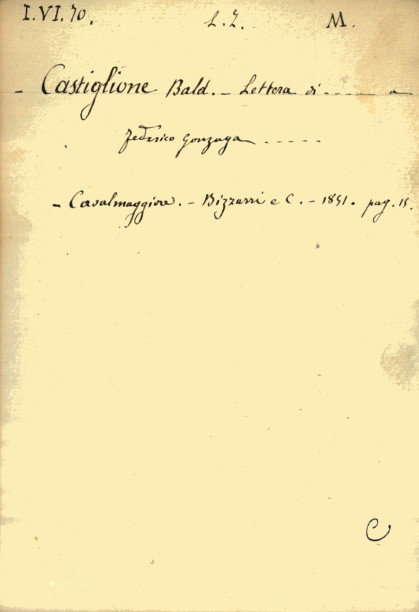 I.VI.70. L.I. M.
- Castiglione Bald. - Lettera di ----- a
Federico Gonzaga -----
- Casalmaggiore. - Bizzarri e C. - 1851. pag. 15.
C